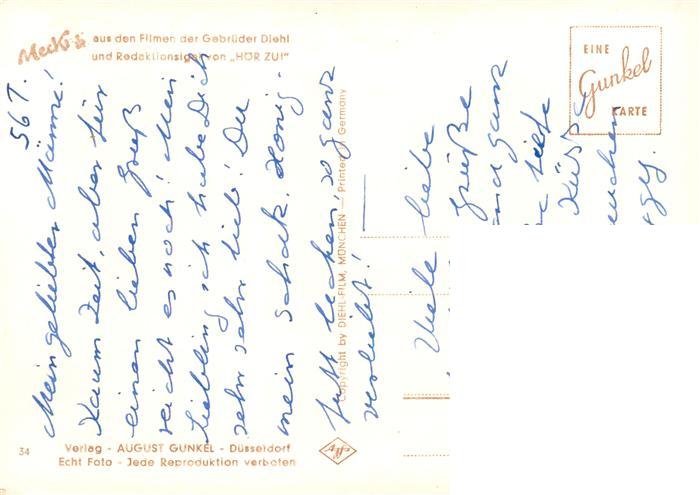 Mecki
aus den Filmen der Gebrüder Diehl
und Redaktionsigel von „HÖR ZU!“
EINE
Gunkel
KARTE
567.
Mein geliebter Männe!
Kaum Zeit, aber für
einen lieben Gruß
reicht es noch! Mein
Liebling, ich habe Dich
sehr sehr lieb! Du
mein Schatz. Honig-
so ganz
verliebt!
Viele liebe
Grüße
und ganz
liebe
Copyright by DIEHL-FILM, MÜNCHEN — Printed in Germany
34
Verlag - AUGUST GUNKEL - Düsseldorf
Echt Foto - Jede Reproduktion verboten
Agfa